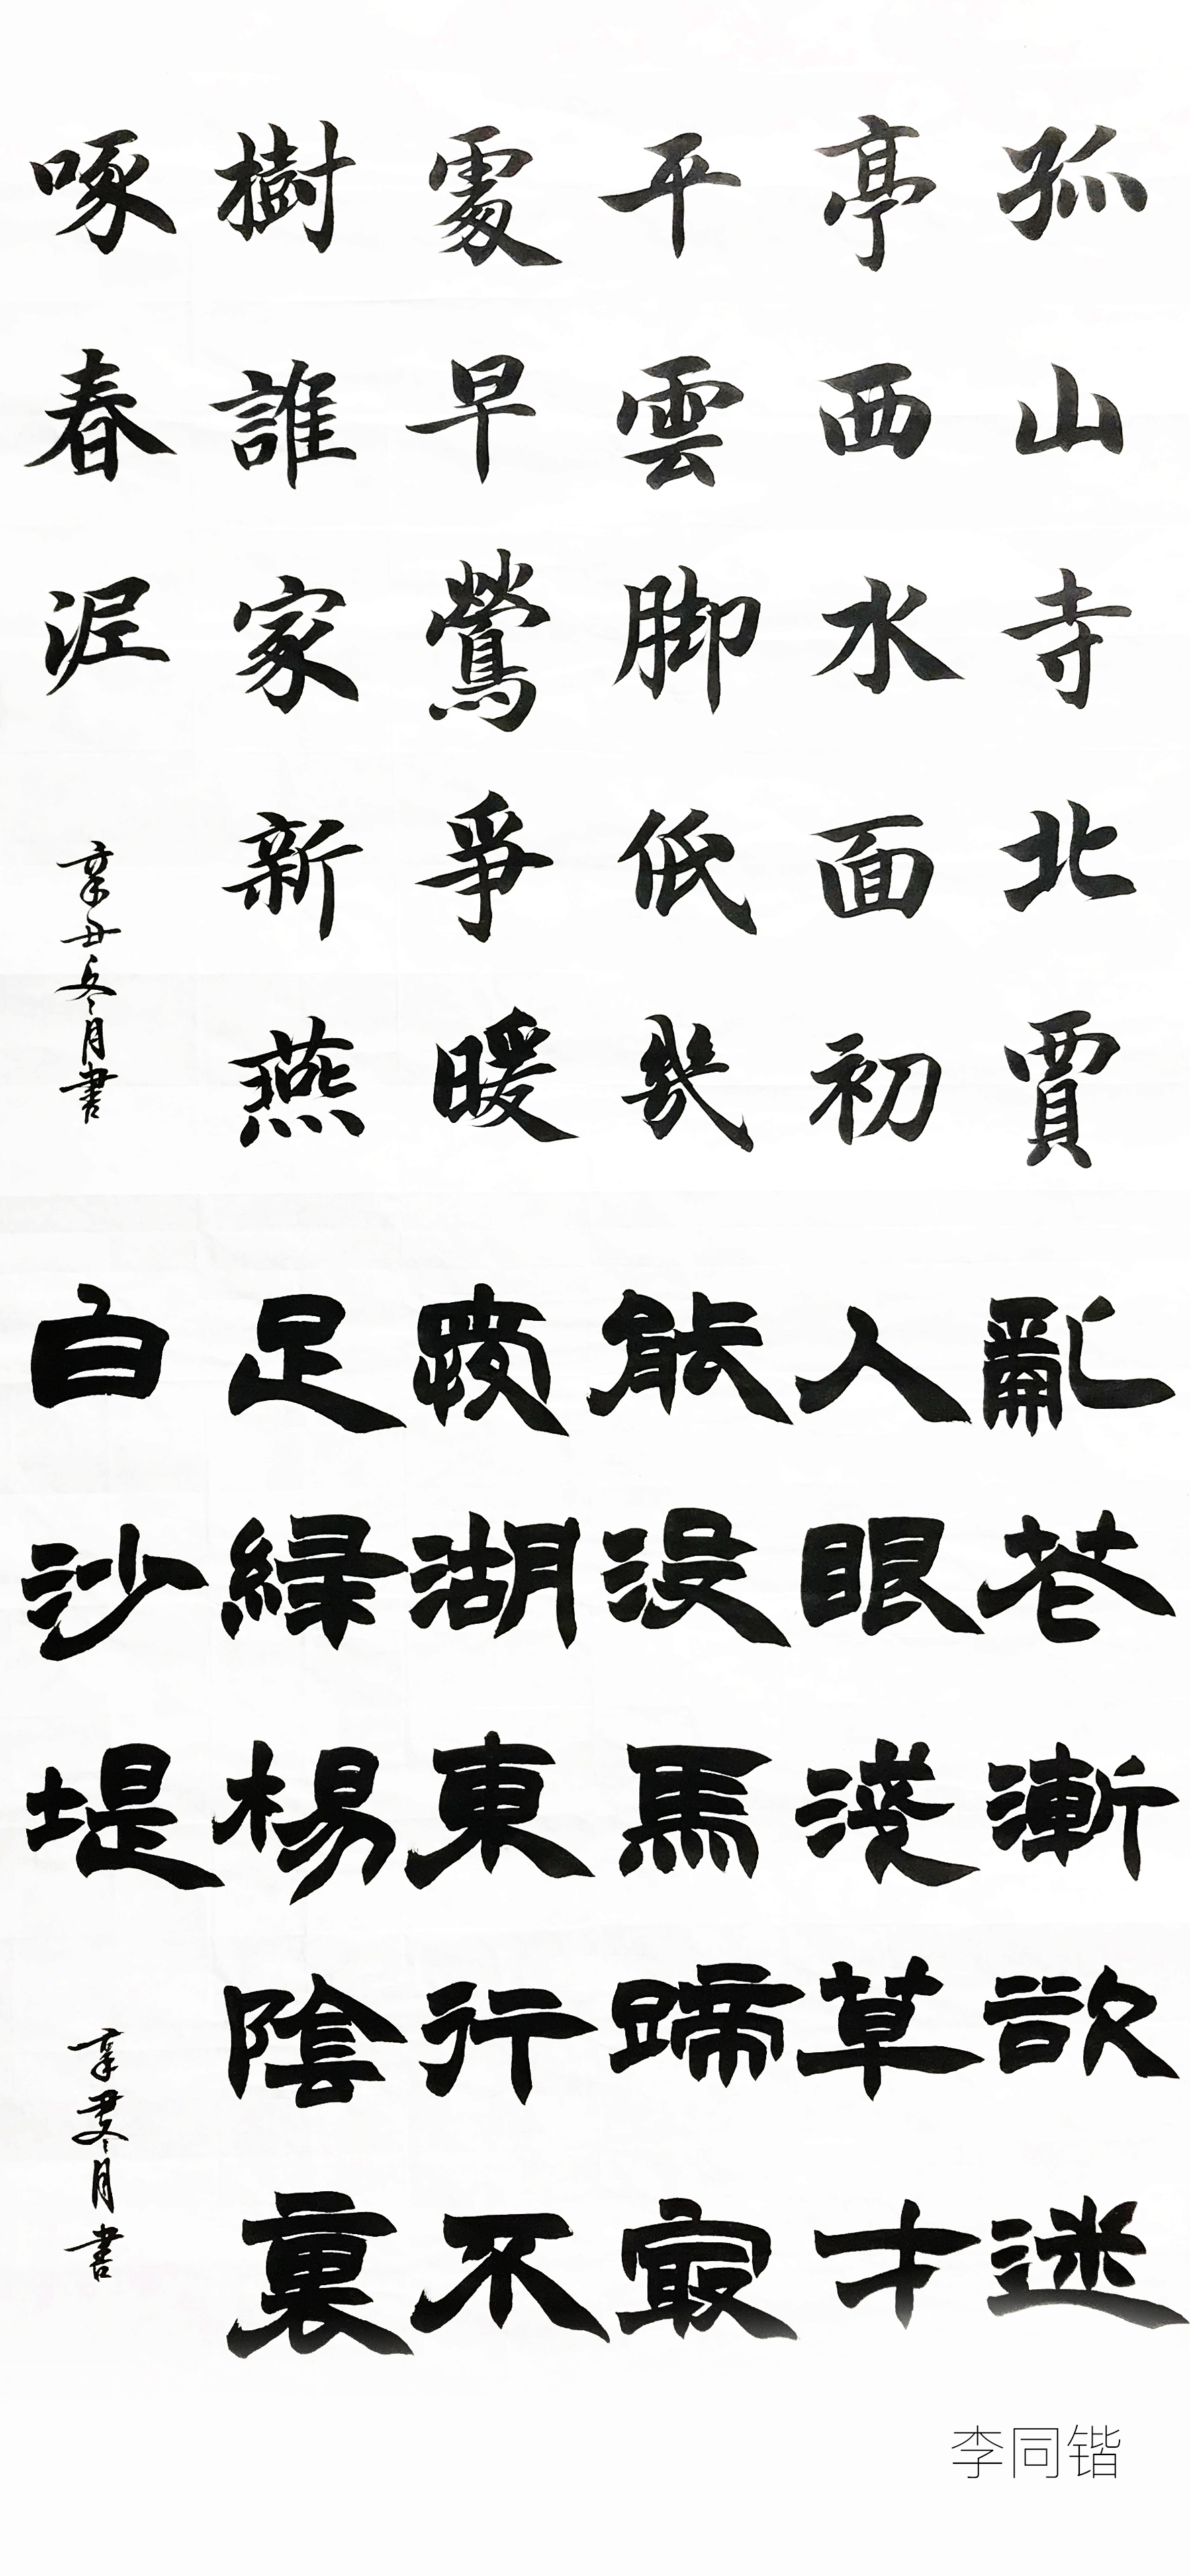 孤山寺北賈
亭西水面初
平雲脚低幾
處早鶯爭暖
樹誰家新燕
啄春泥
辛丑冬月書
亂花漸欲迷
人眼淺草才
能没馬蹄最
愛湖東行不
足緑楊陰裏
白沙堤
辛丑冬月書
李同锴